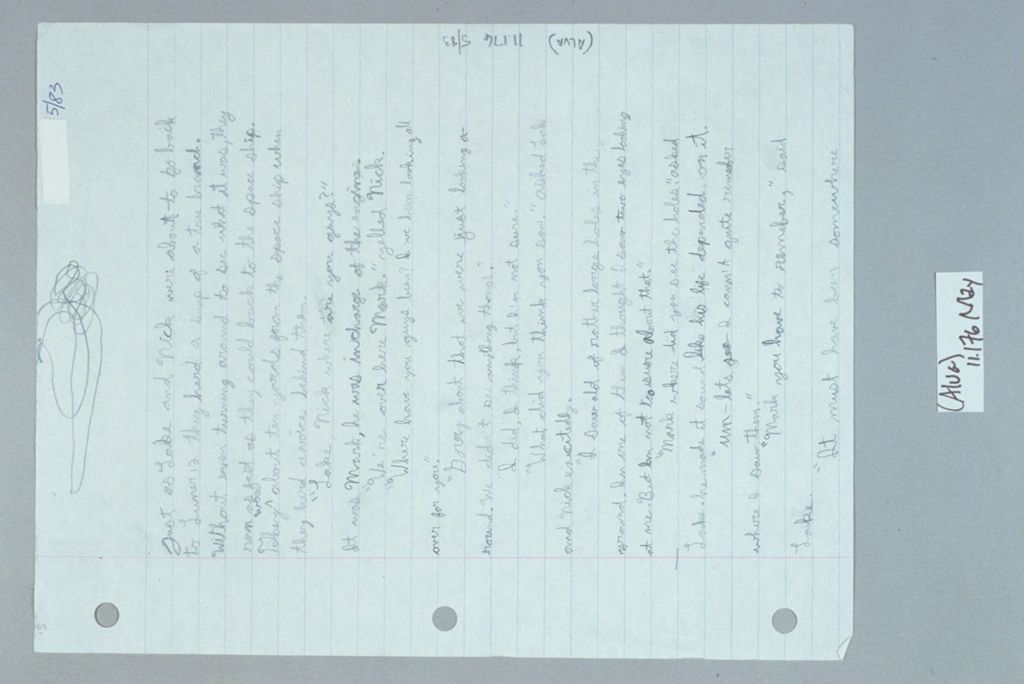 5/83
Just as Lake and Nick were about to go back
to Lunar 13 they herd a snap of a tree branch.
Without even turning around to see what it was, they
ran as fast as they could back to the space ship.
They was about ten yards from the space ship when
they herd a voice behind them.
"Lake, Nick where are you guys?"
It was Mark, he was in charge of the engines.
"We're over here Mark" yelled Nick.
"Where have you guys been? I've been looking all
over for you."
"Sorry about that we were just looking a-
round. We didn't see anything though."
"I did, I think, but I'm not sure."
"What did you think you saw." asked Lake
and Nick excitedly.
"I saw alot of rather large holes in the
ground. In one of them I thought I saw two eyes looking
at me. But Im not to sure about that."
"Mark where did you see the holes" asked
Lake. he made it sound like his life depended on it.
"um-lets see I can't quite remember
where I saw them."
"Mark you have to remeber," said
Lake.
"It must have been somewhere
(ALVA) 11.176 5/83
(Alva)
11.176 May